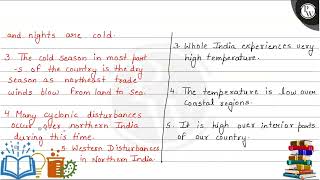 and nights are cold.
3. The cold season in most part
-s of the country is the dry
season as northeast trade
winds blow from land to sea.
4. Many cyclonic disturbances
occur over northern India
during this time.
5. Western Disturbances
in Northern India
3. Whole India experiences very
high temperature.
4. The temperature is low over
coastal regions.
5. It is high over interior parts
of our country.